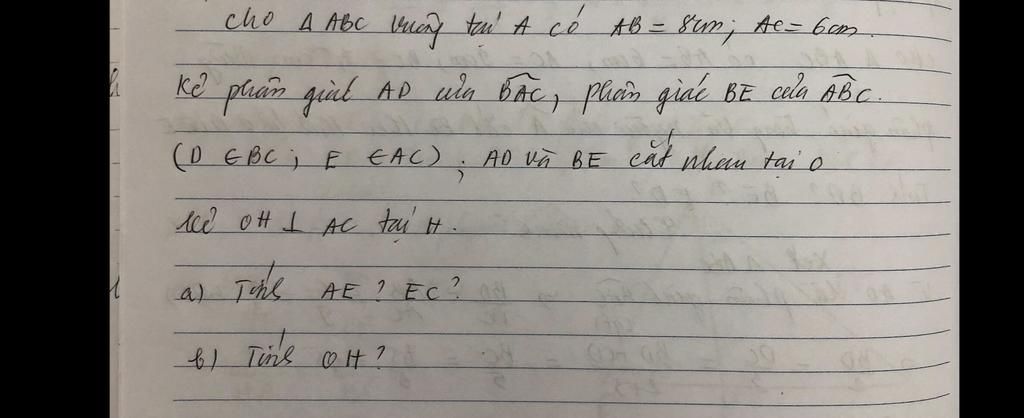 Cho Δ ABC vuông tại A có AB = 8cm; AC = 6cm.
Kẻ phân giác AD của BAC, phân giác BE của ABC.
(D ∈ BC; E ∈ AC); AD và BE cắt nhau tại O
Kẻ OH ⊥ AC tại H.
a) Tính AE? EC?
b) Tính OH?